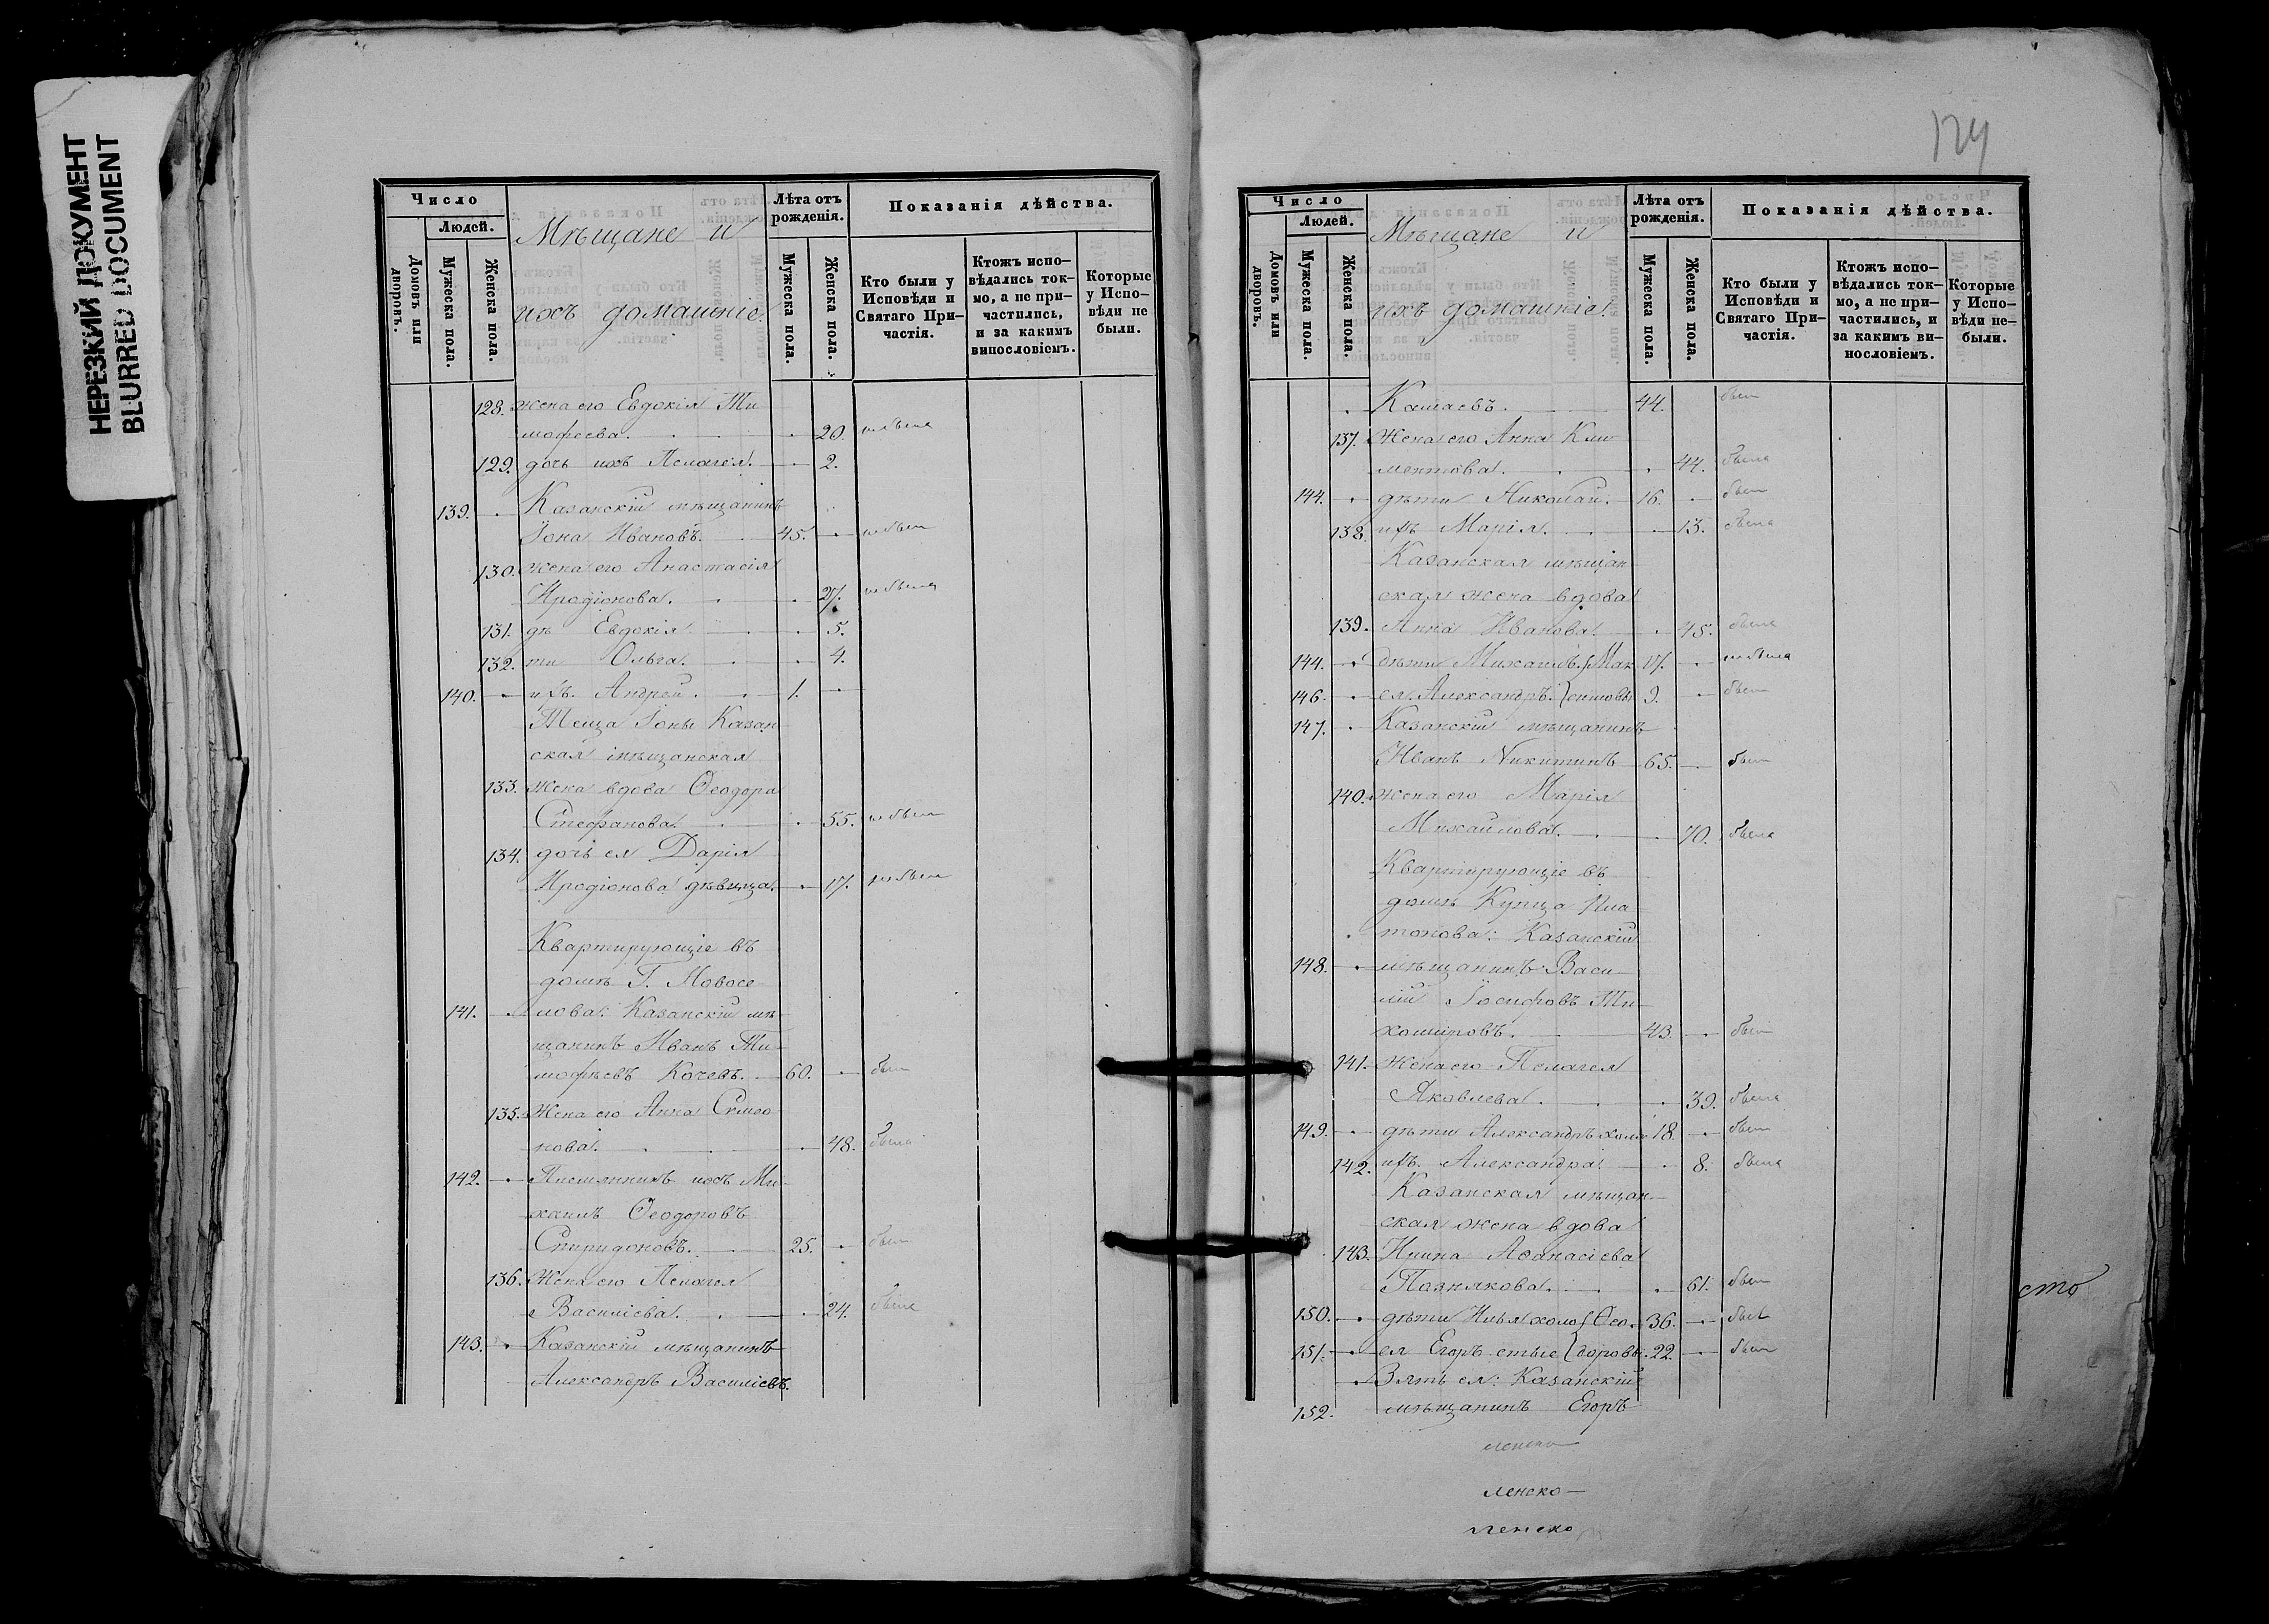 НЕРЕЗКИЙ ДОКУМЕНТ
BLURRED DOCUMENT
Число
Людей.
Домовъ или дворовъ.
Мужеска пола.
Женска пола.
Мѣщане и
ихъ домашніе.
Лѣта отъ рожденія.
Мужеска пола.
Женска пола.
Показанія дѣйства.
Кто были у Исповѣди и Святаго При-частія.
Ктожъ испо-вѣдались ток-мо, а не при-частились, и за какимъ винословіемъ.
Которые у Испо-вѣди не были.
128. жена его Евдокія Ти
мофеева. 20. не была
129. дочь ихъ Пелагея. 2.
139. Казанскій мѣщанинъ
Іона Ивановъ. 45. не был
130. жена его Анастасія
Иродіонова. 27. не была
131. дѣ Евдокія 5.
132. ти Ольга. 4.
140. ихъ. Андрей. 1.
Теща Іоны Казан
ская мѣщанская
133. жена вдова Ѳеодора
Стефанова. 55. не была
134. дочь ея Дарія
Иродіонова дѣвица. 17. не была
Квартирующіе въ
домѣ Г. Новосе
141. лова: Казанскій мѣ
щанинъ Иванъ Ти-
мофѣевъ Кочевъ. 60. был
135. Жена его Анна Симео
нова. 48. была
142. Племянникъ ихъ Ми-
хаилъ Ѳеодоровъ
Спиридоновъ. 25. был
136. Жена его Пелагея
Василіева. 24. была
143. Казанскій мѣщанинъ
Александръ Василіевъ.
124
Число
Людей.
Домовъ или дворовъ.
Мужеска пола.
Женска пола.
Мѣщане и
ихъ домашніе.
Лѣта отъ рожденія.
Мужеска пола.
Женска пола.
Показанія дѣйства.
Кто были у Исповѣди и Святаго При-частія.
Ктожъ испо-вѣдались ток-мо, а не при-частились, и за какимъ ви-нословіемъ.
Которые у Испо-вѣди не-были.
Кашаевъ. 44. был
137. Жена его Анна Кли
ментова. 44. была
144. дѣти Николай. 16. был
138. ихъ Марія. 13. была
Казанская мѣщан
ская жена вдова
139. Анна Иванова. 45. была
144. дѣти Михаилъ. Мак 17. не была
146. ея. Александръ. симовы 9. был
147. Казанскій мѣщанинъ
Иванъ Никитинъ 65. был
140. жена его Марія
Михайлова. 70. была
Квартирующіе въ
домѣ Купца Пла
тонова: Казанскій
148. мѣщанинъ Васи-
лій Іосифовъ Ти-
хомировъ. 43. был
141. Жена его Пелагея
Яковлева. 39. была
149. дѣти Александръ холос 18. был
142. ихъ. Александра. 8. была
Казанская мѣщан-
ская жена вдова
143. Ирина Аѳанасіева
Познякова. 61. был
150. дѣти Илья холо Ѳео. 36. был
151. ея Егоръ стые доровы. 22. был
Зять ея: Казанскій
152. мѣщанинъ Егоръ
сто
ленско
ленско—
ленско